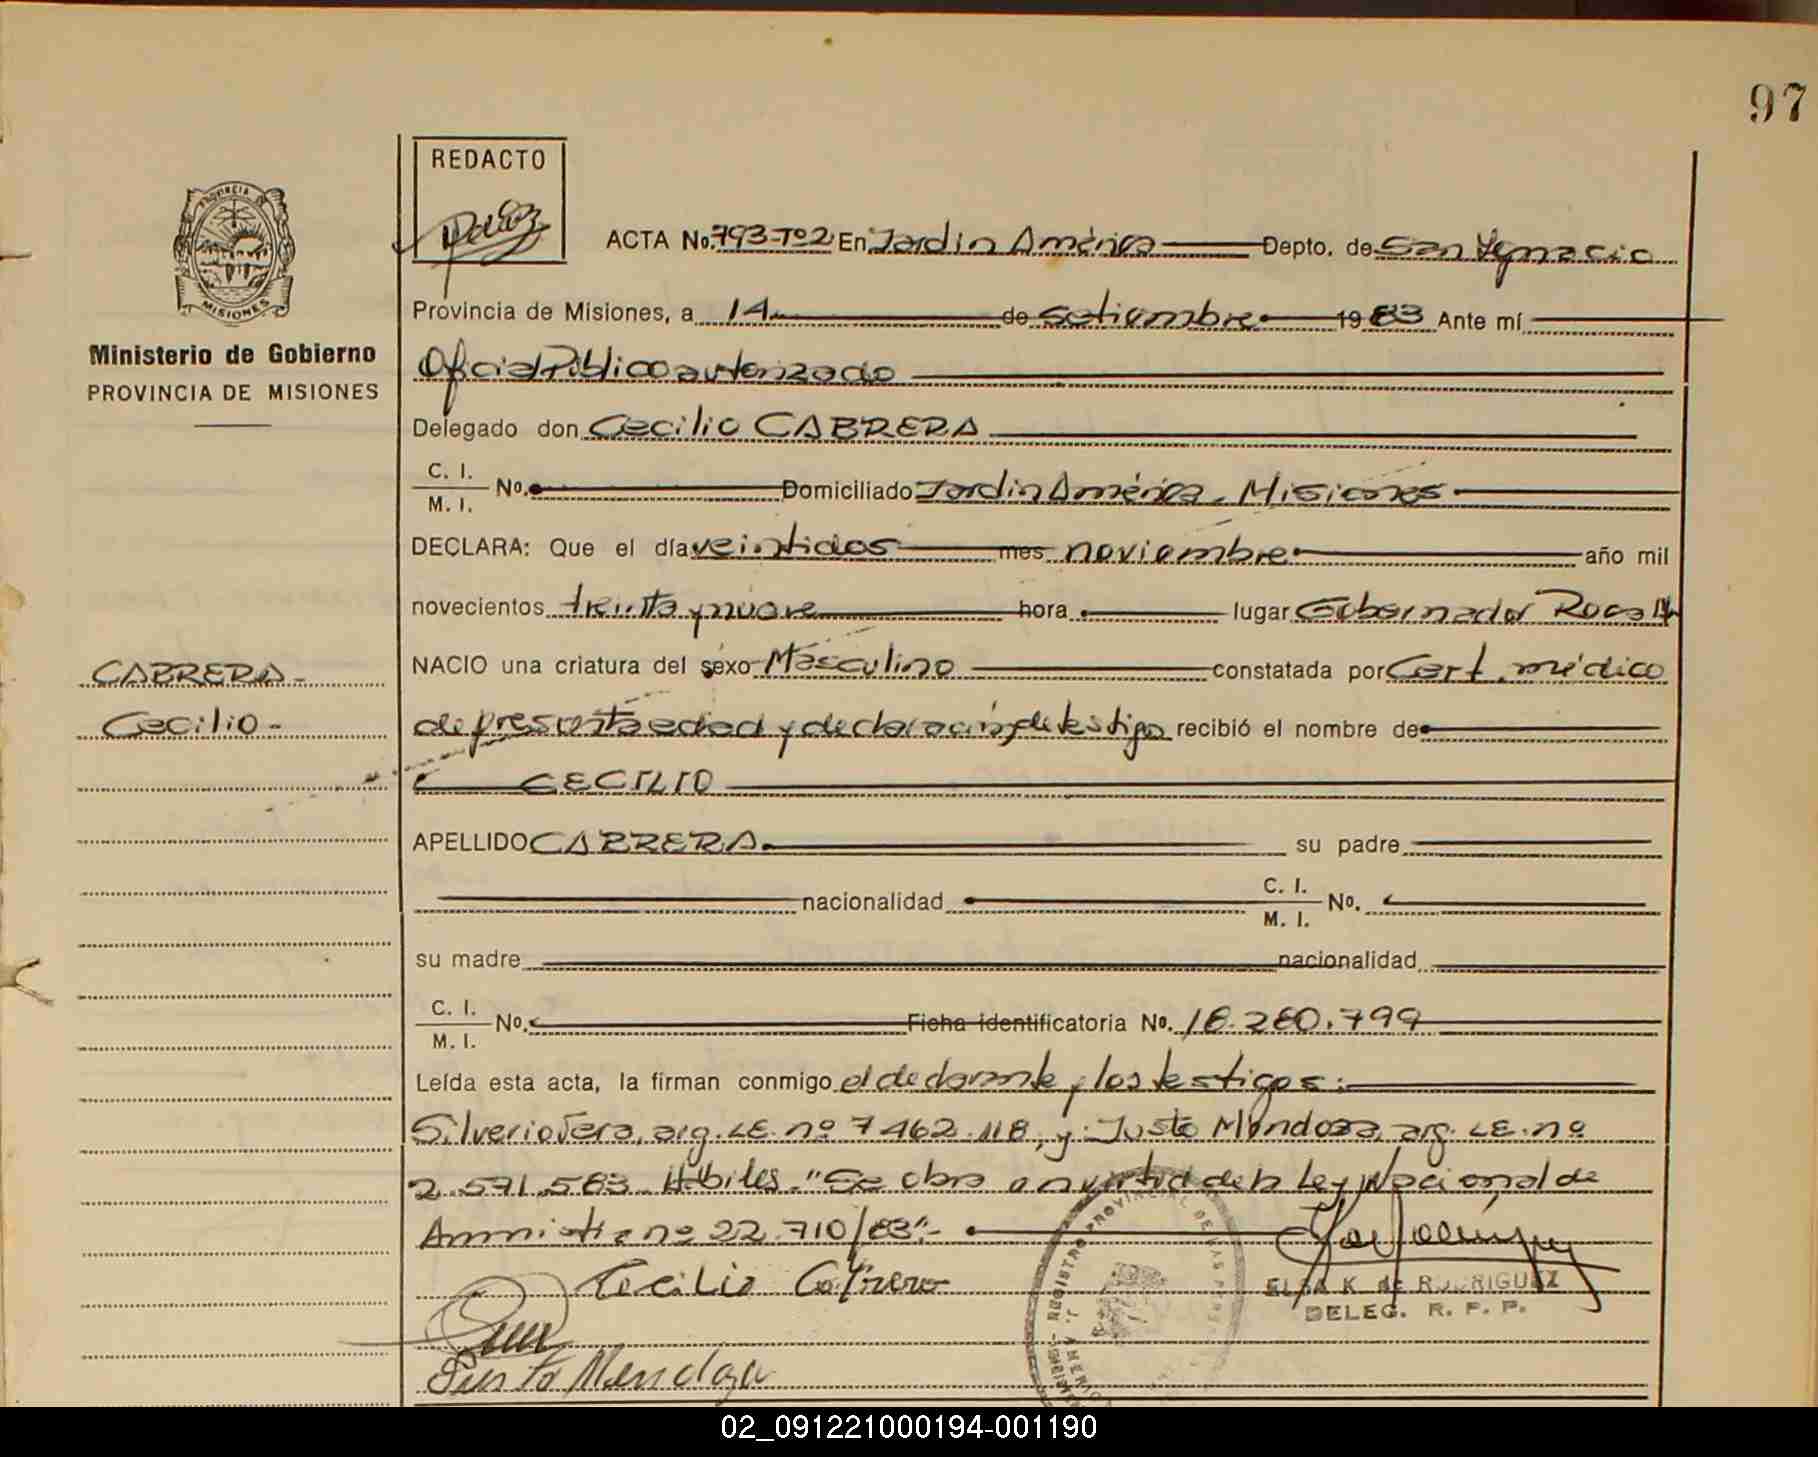 97
REDACTO
PROVINCIA DE
MISIONES
Ministerio de Gobierno
PROVINCIA DE MISIONES
ACTA No. 793-Tº2 En Jardin América Depto. de San Ygnacio
Provincia de Misiones, a 14 de setiembre 1983 Ante mí
Oficial Público autorizado
Delegado don Cecilio CABRERA
C. I.
M. I. No. Domiciliado Jardin América, Misiones
DECLARA: Que el día veintidos mes noviembre año mil
novecientos treinta y nueve hora lugar Gobernador Roca
CABRERA-
NACIO una criatura del sexo Masculino constatada por Cert. médico
Cecilio-
de presunta edad y declaración de testigo recibió el nombre de
CECILIO
APELLIDO CABRERA su padre
nacionalidad C. I.
M. I. No.
su madre nacionalidad
C. I.
M. I. No. Ficha identificatoria No. 18.280.799
Leída esta acta, la firman conmigo el declarante y los testigos:
Silverio Vera, arg. LE. nº 7.462.118, y Justo Mendoza, arg. LE. nº
2.571.583 Hábiles. "Se obra en virtud de la Ley Nacional de
Amnistia nº 22.710/83".-
Cecilio Cabrera
ELSA K. de RODRIGUEZ
DELEG. R. P. P.
Justo Mendoza
REGISTRO PROVINCIAL DE LAS PERS
02_091221000194-001190